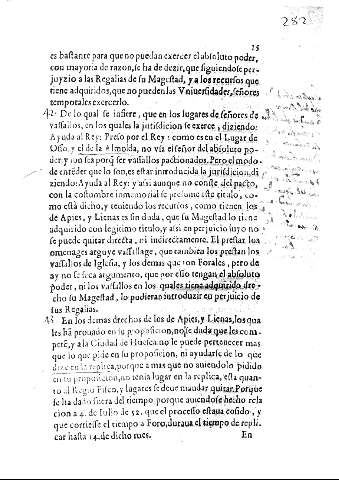 282
15
es bastante para que no puedan exercer el absoluto poder,
con mayoria de razon, se ha de dezir, que siguiendose per-
juyzio a las Regalias de su Magestad, y a los recursos que
tiene adquiridos, que no pueden las Vniuersidades, señores
temporales exercerlo.
42 De lo qual se infiere, que en los lugares de señores de
vassallos, en los quales la jurisdicion se exerce, diziendo:
Ayuda al Rey: Preso por el Rey: como es en el Lugar de
Osso, y el de la Almolda, no vsa el señor del absoluto po-
der, y son sea porq̃ ser vassallos pactionados. Pero el modo
de entẽder que lo son, es estar introducida la jurisdicion, di
ziendo: Ayuda al Rey: y assi aunque no conste del pacto,
con la costumbre inmemorial se presume este titulo, co-
mo està dicho, y teniendo los recursos, como tienen los
de Apies, y Lienas es sin duda, que su Magestad lo tiene
adquirido con legitimo titulo, y assi en perjuyzio suyo no
se puede quitar directa, ni indirectamente. El prestar los
omenages arguye vassallage, que tambien los prestan los
vassallos de Iglesia, y los demas que son Forales, pero de
ay no se saca argumento, que por esso tengan el absoluto
poder, ni los vassallos en los quales tiene adquirido dre-
cho su Magestad, lo pudieran introduzir en perjuicio de
sus Regalias.
43 En los demas drechos de los de Apies, y Lienas, los qua
les ha propuesto en su proposicion, no se duda que les com-
petẽ, y a la Ciudad de Huesca no le puede pertenecer mas
que lo que pide en su proposicion, ni ayudarse de lo que
dize en la replica, porque a mas que no auiendolo pidido
en su proposicion, no tenia lugar en la replica, esta quan-
to al Regio Fisco, y lugares se deue mandar quitar. Porque
se ha dado fuera del tiempo porque auiendose hecho rela
cion a 4. de Iulio de 52. que el processo estaua cosido, y
que corriesse el tiempo a Foro, duraua el tiempo de repli
car hasta 14. de dicho mes.
En